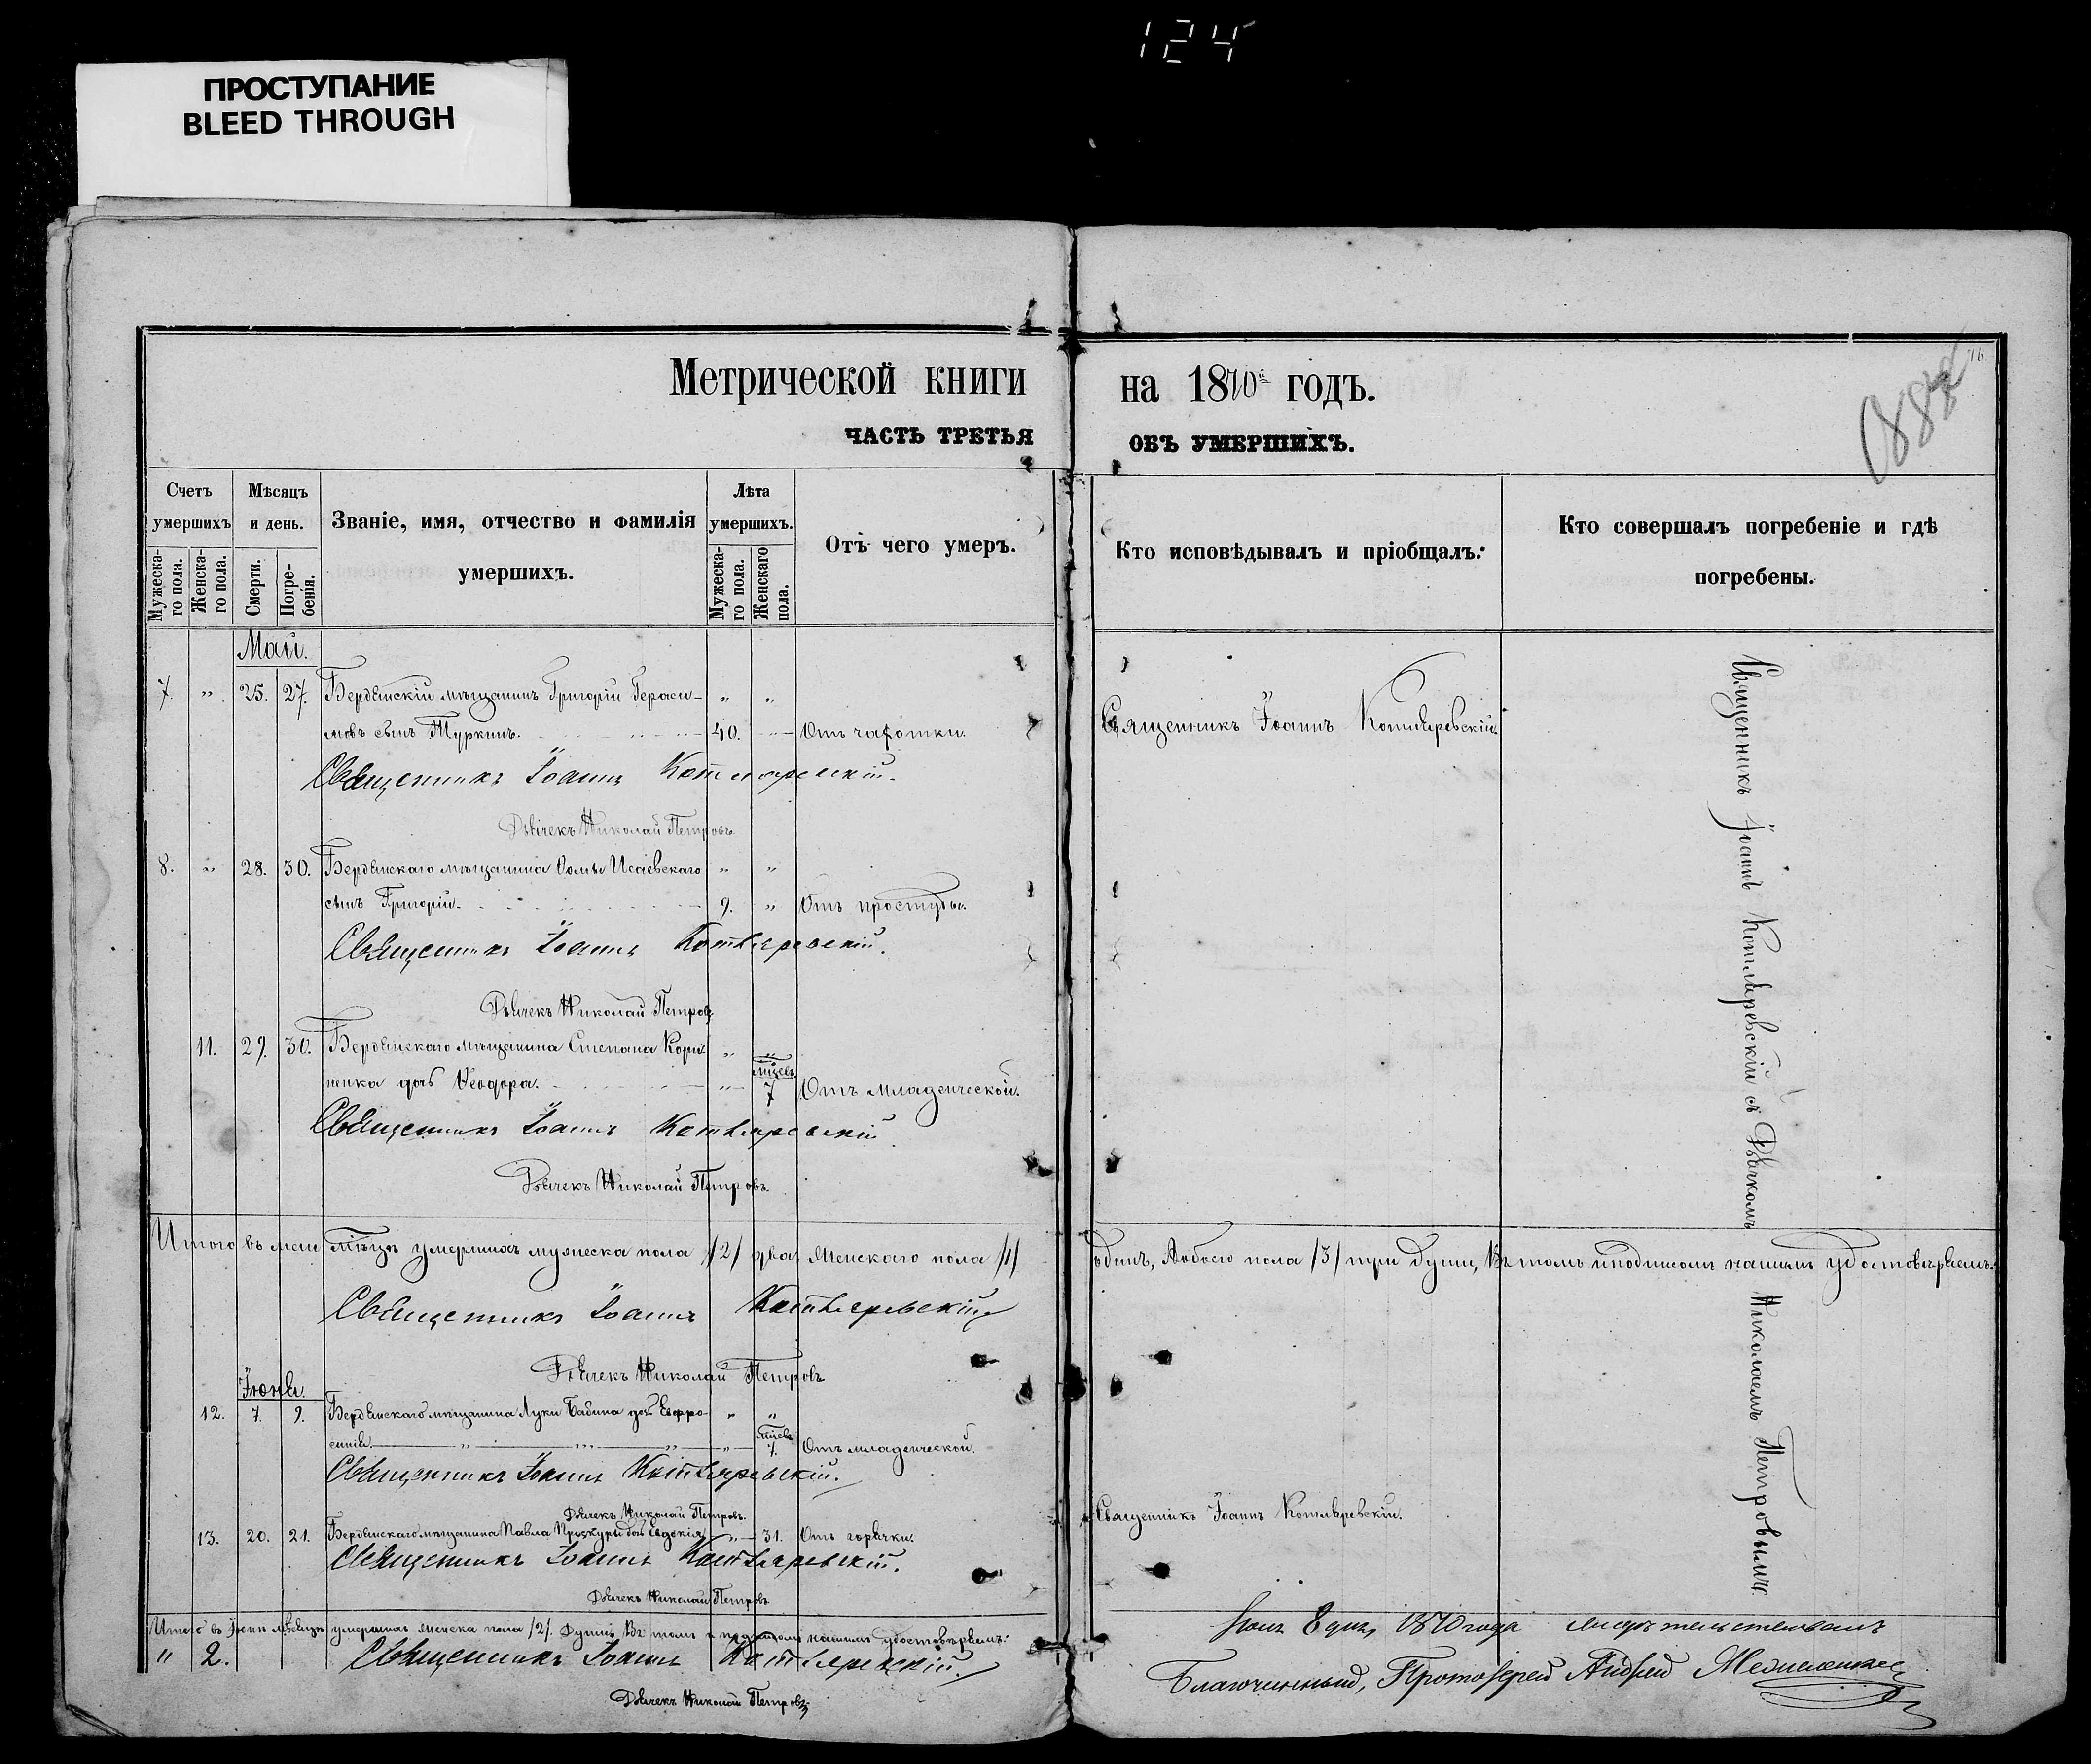 124
ПРОСТУПАНИЕ
BLEED THROUGH
Метрической книги на 1870й годъ.
ЧАСТЬ ТРЕТЬЯ ОБЪ УМЕРШИХЪ.
76.
Счетъ умершихъ
Мужеска-го пола.
Женска-го пола.
Мѣсяцъ и день.
Смерти.
Погре-бенія.
Званіе, имя, отчество и фамилія умершихъ.
Лѣта умершихъ.
Мужеска-го пола.
Женскаго пола.
Отъ чего умеръ.
Кто исповѣдывалъ и пріобщалъ:
Кто совершалъ погребеніе и гдѣ погребены.
Май.
7. " 25. 27. Бердянскій мѣщанинъ Григорій Гераси- " "
мовъ сынъ Туркинъ. 40. Отъ чахотки. Священникъ Іоаннъ Котляревскій.
Священникъ Іоаннъ Котляревскій.
Дьячекъ Николай Петровъ.
8. " 28. 30. Бердянскаго мѣщанина Ѳомы Исаевскаго " "
сынъ Григорій. 9. " Отъ простуды.
Священникъ Іоаннъ Котляревскій.
Дьячекъ Николай Петровъ.
11. 29. 30. Бердянскаго мѣщанина Степана Корн- " "
ненка дочь Ѳеодора. " мѣсев. 7 Отъ младенческой.
Священникъ Іоаннъ Котляревскій
Дьячекъ Николай Петровъ.
Итого въ маи мѣсяцѣ умершихъ мужеска пола /2/ два Женскаго пола /1/ одинъ, Аобоего пола /3/ три души, Въ томъ иподписомъ нашимъ удостовѣряемъ:
Священникъ Іоаннъ Котляревскій
Дьячекъ Николай Петровъ
Іюнь.
12. 7. 9. Бердянскаго мѣщанина Луки Бабина дочь Евфро- " "
синія. " мѣсев. 7. Отъ младенческой.
Священникъ Іоаннъ Котляревскій.
Дьячекъ Николай Петровъ.
13. 20. 21. Бердянскаго мѣщанина Павла Проскуры дочь Евдокія " 31. Отъ горячки. Священникъ Іоаннъ Котляревскій.
Священникъ Іоаннъ Котляревскій.
Дьячекъ Николай Петровъ
Итого въ Іюнѣ мѣсяцѣ умершихъ женска пола /2/. Души, Въ томъ и подписомъ нашимъ удостовѣряемъ:
" 2. Священникъ Іоаннъ Котляревскій.
Дьячекъ Николай Петровъ
Священникъ Іоаннъ Котляревскій съ Дьячкомъ Николаемъ Петровымъ
1870 года
Благочинный, Протоіерей Андрей